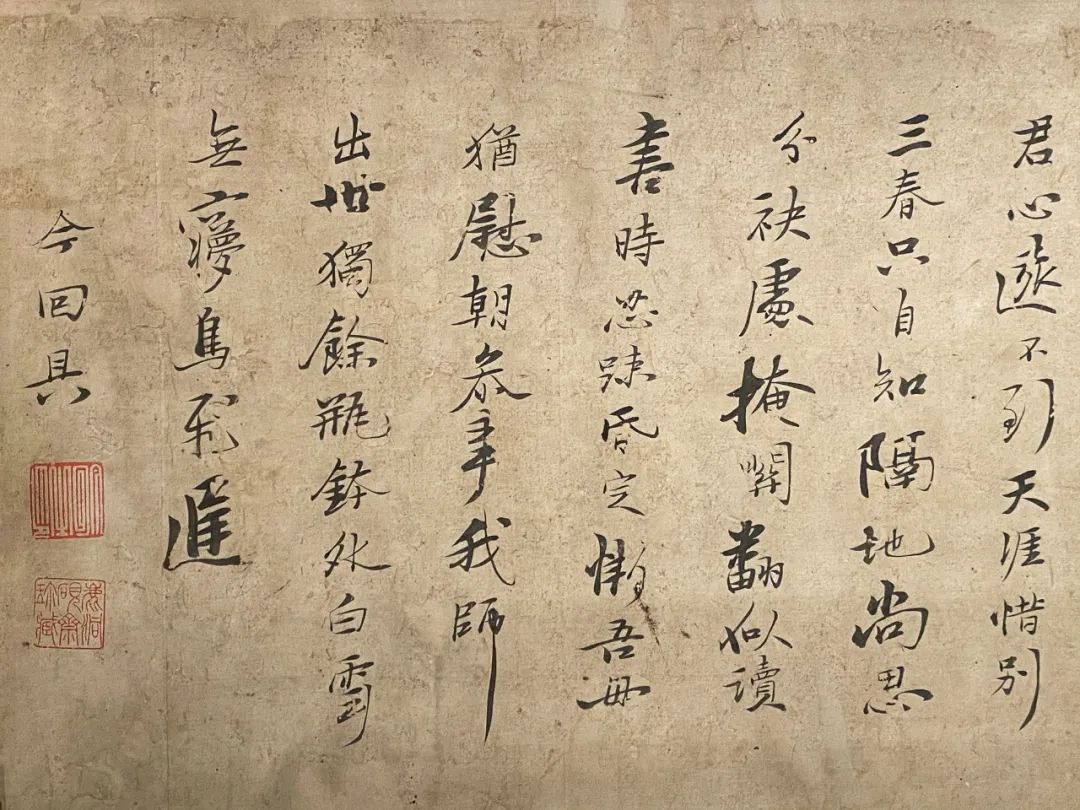 君心遊不到天涯惜別
三春只自知隔地尚思
分袂處掩關翻似讀
書時忍疎昏定慚吾母
猶慰朝參事我師
出世獨餘瓶鉢外白雲
無夢鳥飛
今回具